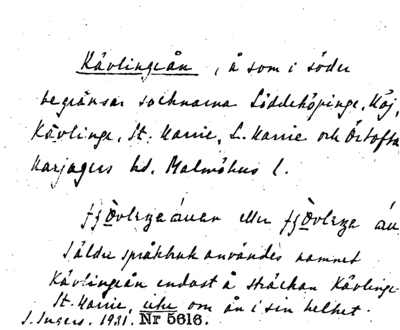 Kävlingeån, å som i söder
begränsar socknarna Löddeköpinge, Hög,
Kävlinge, St. Harrie, L. Harrie och Örtofta
Harjagers hd. Malmöhus l.
eller
I äldre språkbruk användes namnet
Kävlingeån endast å sträckan Kävlinge-
St. Harrie, icke om ån i sin helhet.
I. Ingers. 1931. Nr 5616.